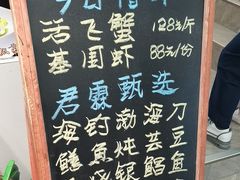 活飞蟹 128元/斤
基围虾 88元/份
君霖甄选
海钓渤海刀
鱼炖芸豆
银鲳鱼